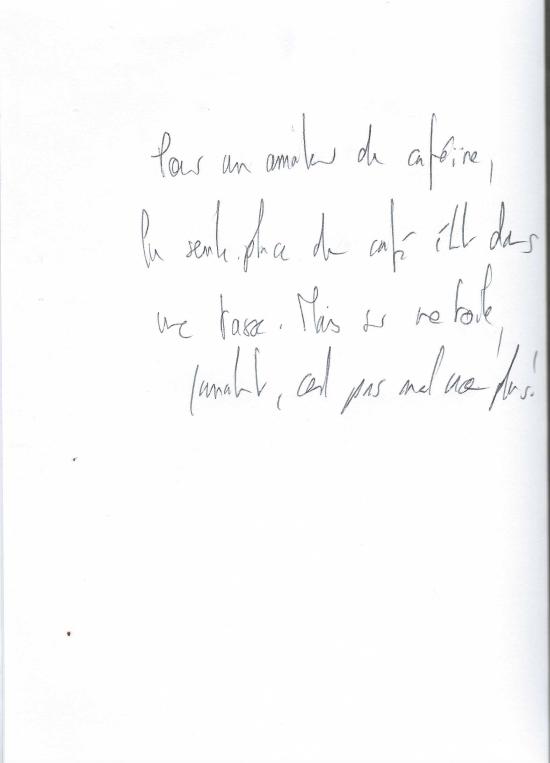 Pour un amateur de caféine,
la seule place du café était dans
une tasse. Mais sur une toile,
, c'est pas mal non plus!